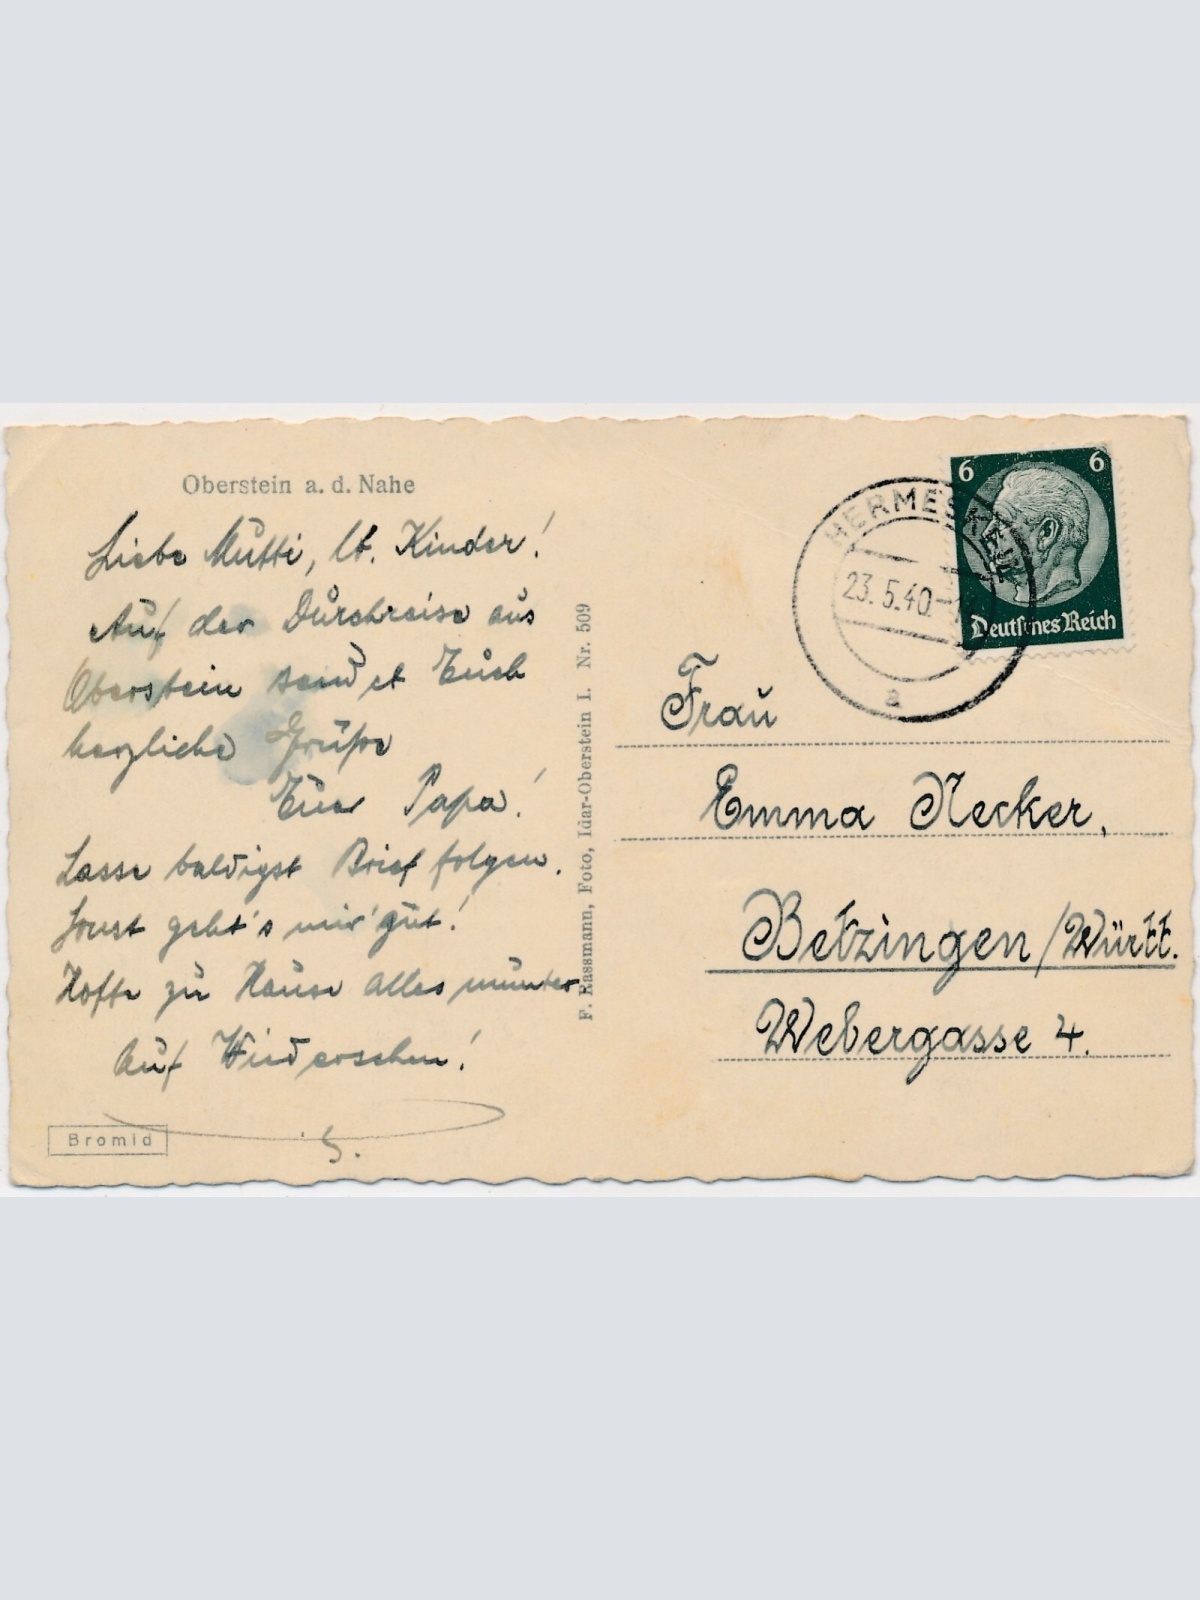 Oberstein a. d. Nahe
Liebe Mutti, lb. Kinder!
Auf der Durchreise aus
Oberstein sendet Euch
herzliche Grüße
Euer Papa!
Lasse baldigst Brief folgen.
Sonst geht's mir gut!
Hoffe zu Hause alles munter
Auf Wiedersehen!
Bromid
F. Rassmann, Foto, Idar-Oberstein 1. Nr. 509
HERMESKEIL
23.5.40
a
6 6
Deutsches Reich
Frau
Emma Necker,
Betzingen/Württ.
Webergasse 4.